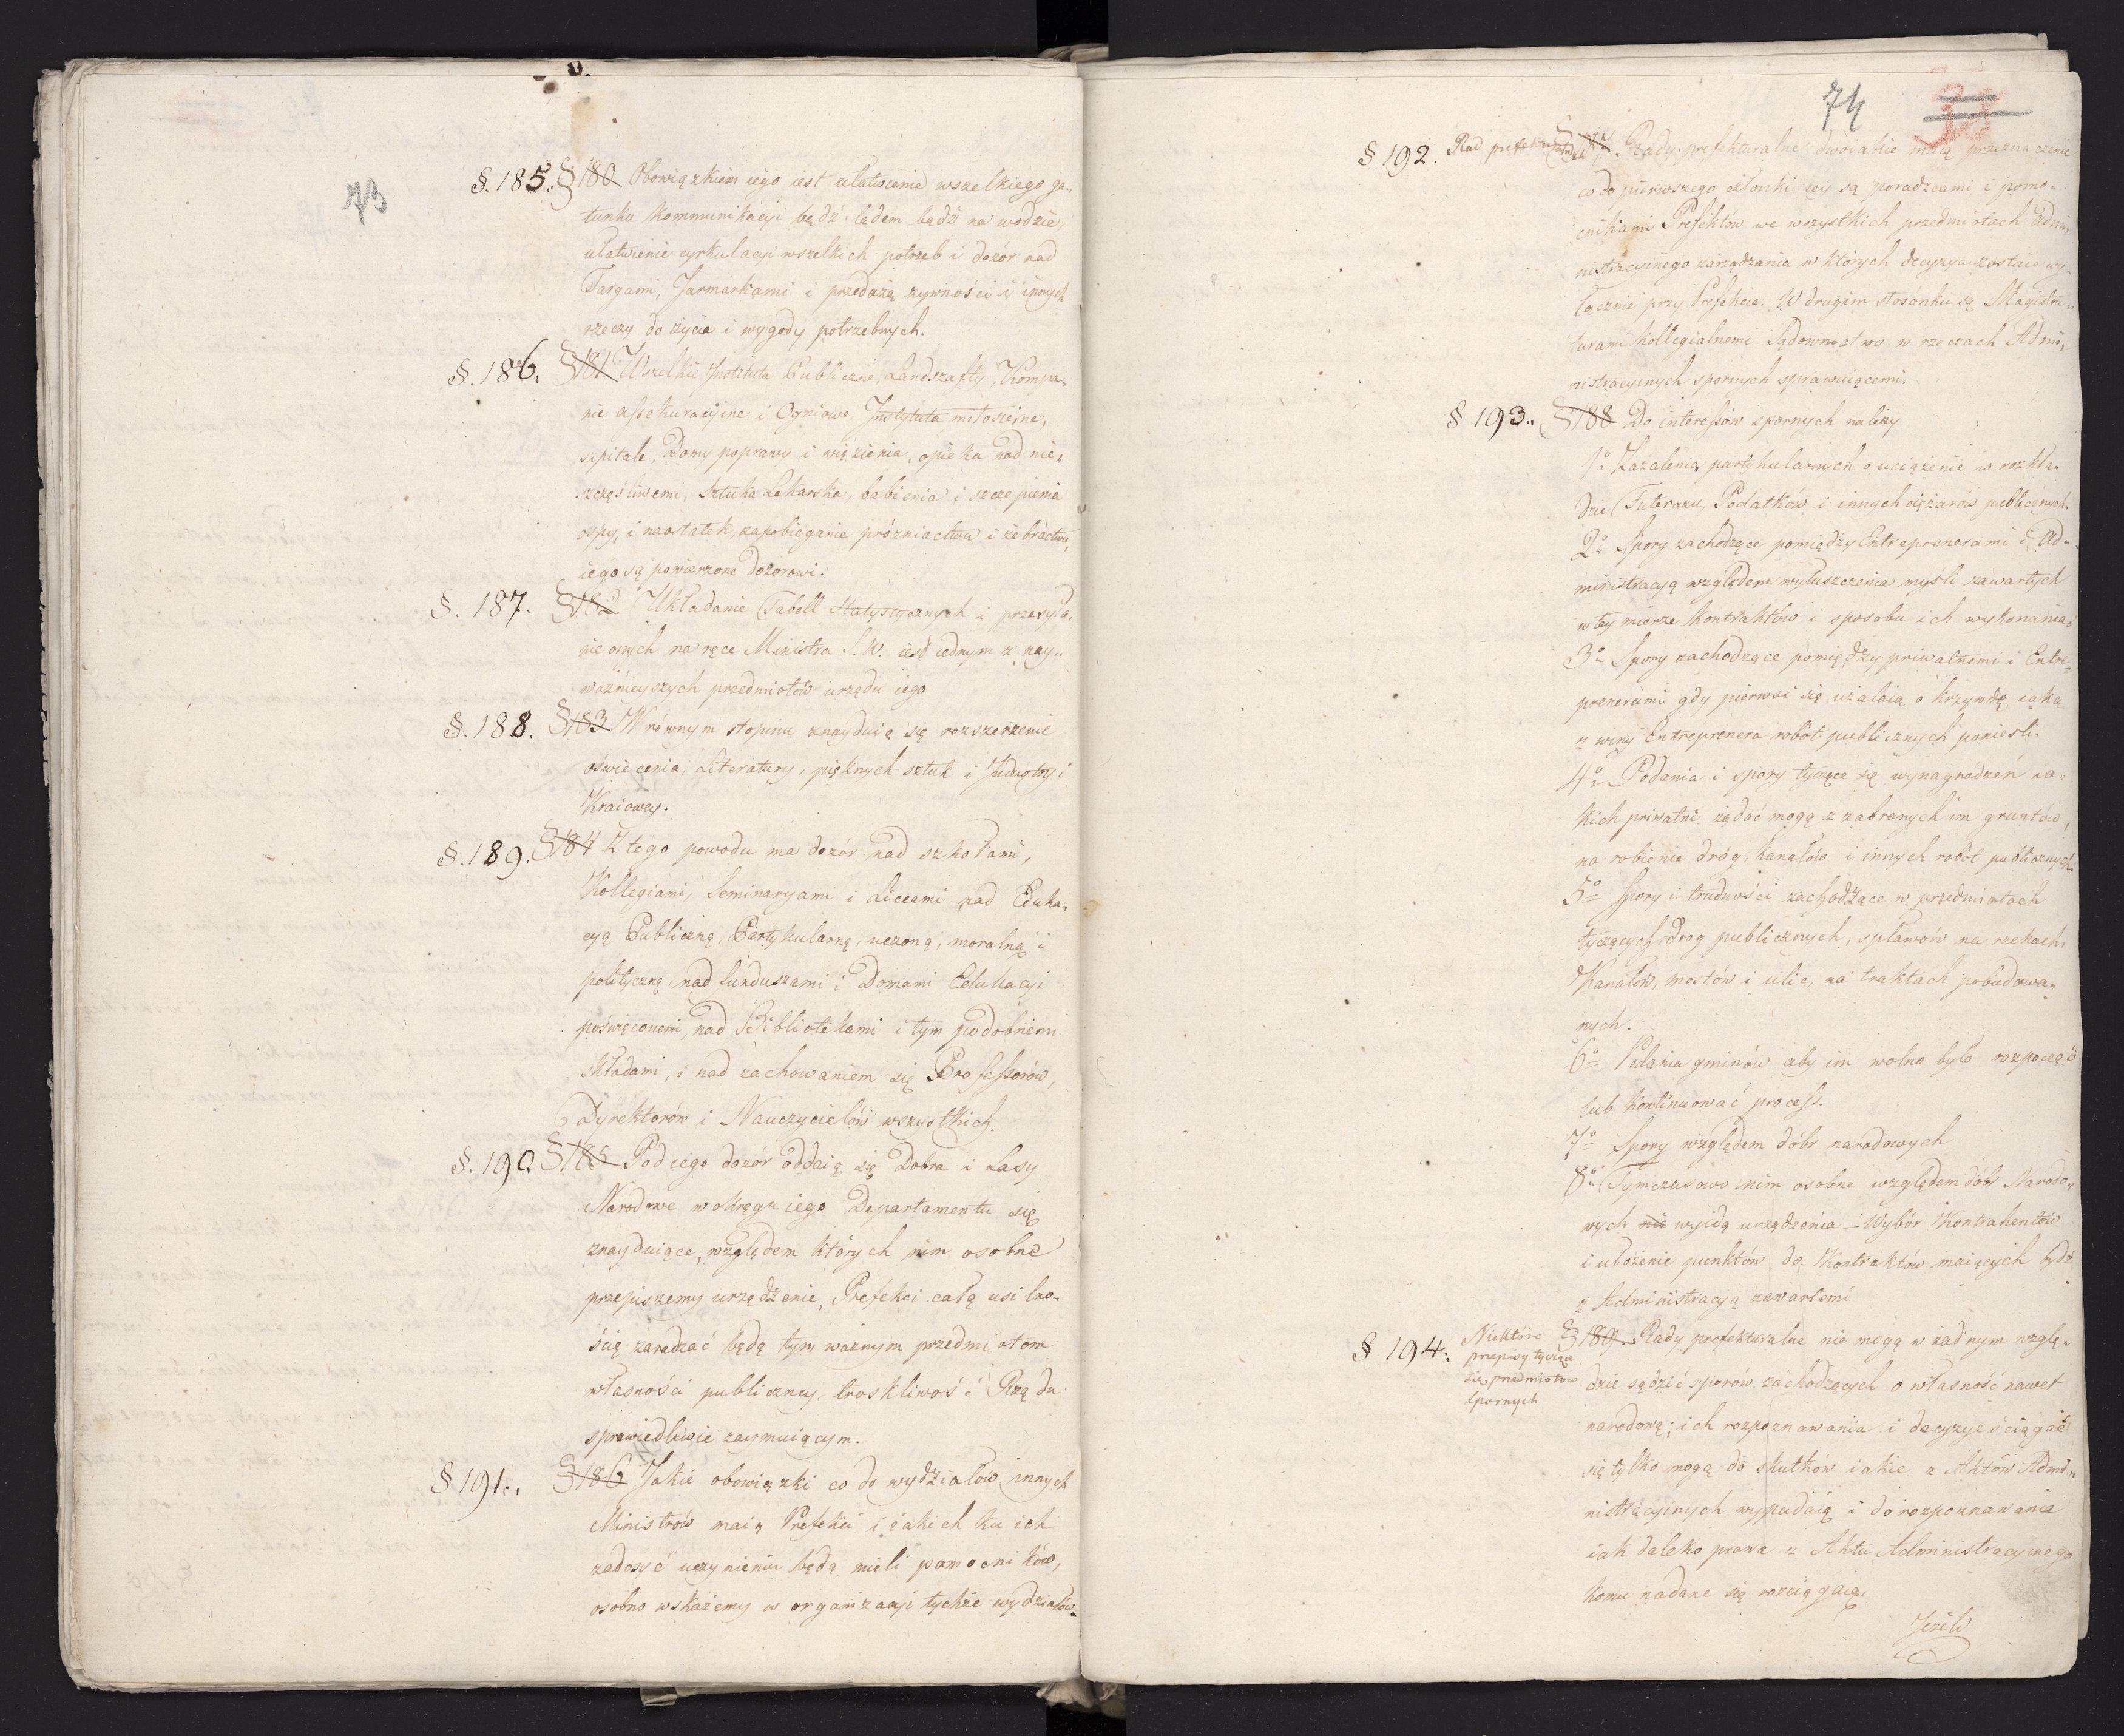 73
§. 185. § 180 Obowiązkiem iego iest ułatwienie wszelkiego ga-
tunku Kommunikacyi bądź lądem bądź na wodzie,
ułatwienie cyrkulacyi wszelkich potrzeb i dozór nad
Targami, Jarmarkami i przedażą żywności i innych
rzeczy do życia i wygody potrzebnych.
§. 186. § 181 Wszelkie Instituta Publiczne, Landszafty, Kompa-
nie assekuracyine i Ogniowe Instytuta miłosierne,
szpitale, Domy poprawy i więzienia, opieka nad nie-
szczęśliwemi, Sztuka Lekarska, babienia i szczepienia
ospy, i naostatek, zapobieganie próżniactwu i żebractwu,
iego są powierzone dozorowi.
§. 187. § 182 Układanie Tabell Statystycznych i przesyła-
nie onych na ręce Ministra S. W. iest iednym z nay-
ważnieyszych przedmiotów urzędu iego
§. 188. § 183 W równym stopniu znayduią się rozszerzenie
oświecenia, Literatury, pięknych sztuk i Industryi
Kraiowey.
§. 189. § 184 Z tego powodu ma dozór nad szkołami,
Kollegiami, Seminaryami i Liceami nad Eduka-
cyą Publiczną, Partykularną, uczoną, moralną i
polityczną nad funduszami i Domami Edukacyi
poświęconemi, nad Bibliotekami i tym podobniemi
składami, i nad zachowaniem się Professorów,
Dyrektorów i Nauczycielów wszystkich.
§. 190 § 185 Pod iego dozór oddaią się Dobra i Lasy
Narodowe w okręgu iego Departamentu się
znayduiące, względem których nim osobne
przepiszemy urządzenie, Prefekci całą usilno-
ścią zaradzać będą tym ważnym przedmiotom
własności publiczney, troskliwość Rządu
sprawiedliwie zaymuiącym.
§ 191. § 186 Jakie obowiązki co do wydziałów innych
Ministrów maią Prefekci i iakich ku ich
zadosyć uczynieniu będą mieli pomocników,
osobno wskażemy w organizacyi tychże wydziałów.
74
§ 192. Rad prefektural. § 187 Rady prefekturalne dwoiakie maią przeznaczenie
co do pierwszego członki iey są poradzcami i pomo-
cnikami Prefektów we wszystkich przedmiotach admi-
nistracyinego zarządzania w których decyzya zostaie wy-
łącznie przy Prefekcie. W drugim stosónku są Magistra-
turami Kollegialnemi Sądownictwo w rzeczach Admi-
nistracyinych spornych sprawuiącemi.
§ 193. § 188 Do interessów spornych należy
1o Zażalenia partykularnych o uciążenie w rozkła-
dzie Futerażu, Podatków i innych ciężarów publicznych.
2o Spory zachodzące pomiędzy Entreprenerami i Ad-
ministracyą względem wyłuszczenia myśli zawartych
w tey mierze Kontraktów i sposobu ich wykonania
3o Spory zachodzące pomiędzy priwatnemi i Entre-
prenerami gdy pierwsi się użalaią o krzywdę iaką
z winy Entreprenera robót publicznych ponieśli.
4o Podania i spory tyczące się wynagrodzeń ia-
kich priwatni żądać mogą z zabranych im gruntów,
na robienie dróg, kanałów i innych robót publicznych.
5o Spory i trudności zachodzące w przedmiotach
tyczących dróg publicznych, spławów na rzekach,
Kanałów, mostów i ulic, na traktach pobudowa-
nych.
6o Podania gminów aby im wolno było rozpocząć
lub kontinuować process.
7o Spory względem dóbr narodowych
8o Tymczasowo nim osobne względem dóbr Narodo-
wych nie wyidą urządzenia – Wybór Kontrahentów
i ułożenie punktów do Kontraktów maiących bydź
z Administracyą zawartemi
§ 194. Niektóre przepisy tyczące się przedmiotów spornych § 189. Rady prefekturalne nie mogą w żadnym wzglę-
dzie sądzić sporów zachodzących o własność nawet
narodową; ich rozpoznawania i decyzye ściągać
się tylko mogą do skutków iakie z Aktów Admi-
nistracyinych wypadaią i do rozpoznawania
iak daleko prawa z Aktu Administracyinego
komu nadane się rozciągaią.
Jeżeli